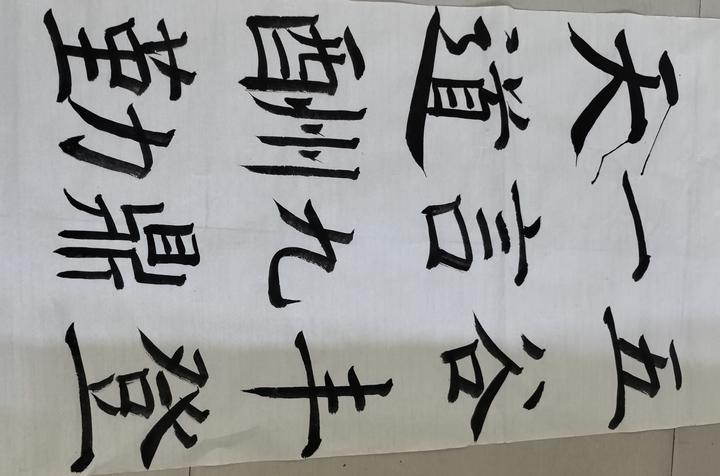 五谷丰登
一言九鼎
天道酬勤